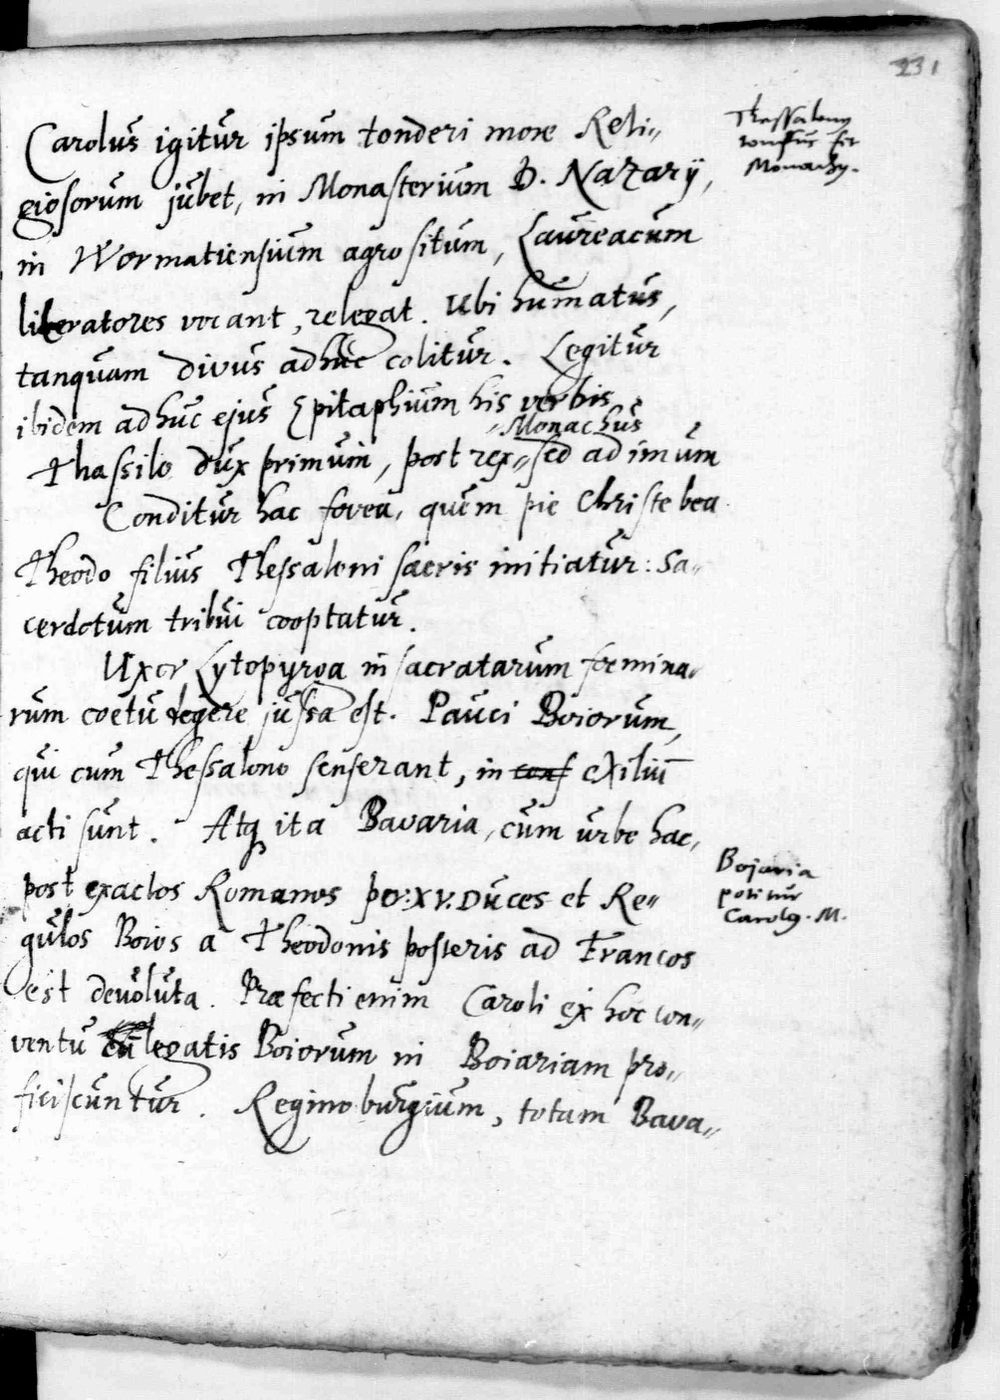 231
Carolus igitur ipsum tonderi more Reli„
giosorum jubet, in Monasterium D. Nazarÿ,
in Wormatiensium agro situm, Laureacum
literatores vocant, relegat. Ubi humatus,
tanquam divus adhuc colitur. Legitur
ibidem adhuc ejus Epitaphium his verbis
„Monachus
Thassilo dux primum, post rex„ sed ad imum
Conditur hac fovea, quem pie Christe bea
Theodo filius Thessaloni sacris initiatur: Sa„
cerdotum tribui cooptatur.
Uxor Lytopyrga in sacratarum foemina„
rum coetu degere jussa est. Pauci Boiorum,
qui cum Thessalono senserant, in conf exiliū
acti sunt. Atq ita Bavaria, cum urbe hac,
post exactos Romanos per XV. Duces et Re„
gulos Boios a Theodonis posteris ad Francos
est devoluta. Præfecti enim Caroli ex hoc con„
ventu cū legatis Boiorum in Boiariam pro„
ficiscuntur. Reginoburgium, totam Bava„
Thessalonus
tonsus fit
Monachus.
Bojaria
potitur
Carolus. M.